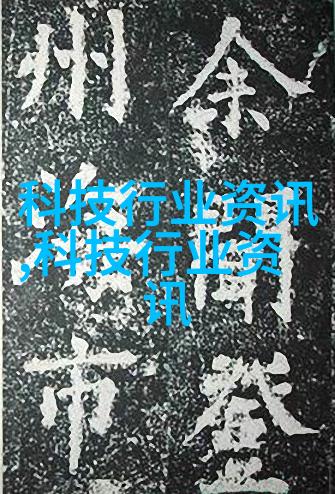 科技行业资讯
,科技行业资
讯
余聞登
州海市